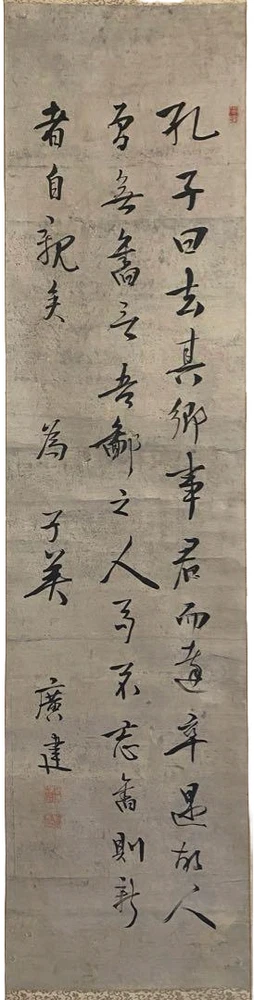 孔子曰去其鄉事君而達卒遇故人
曾無舊言吾鄙之人不忘舊則新
者自親矣 為 子
廣建